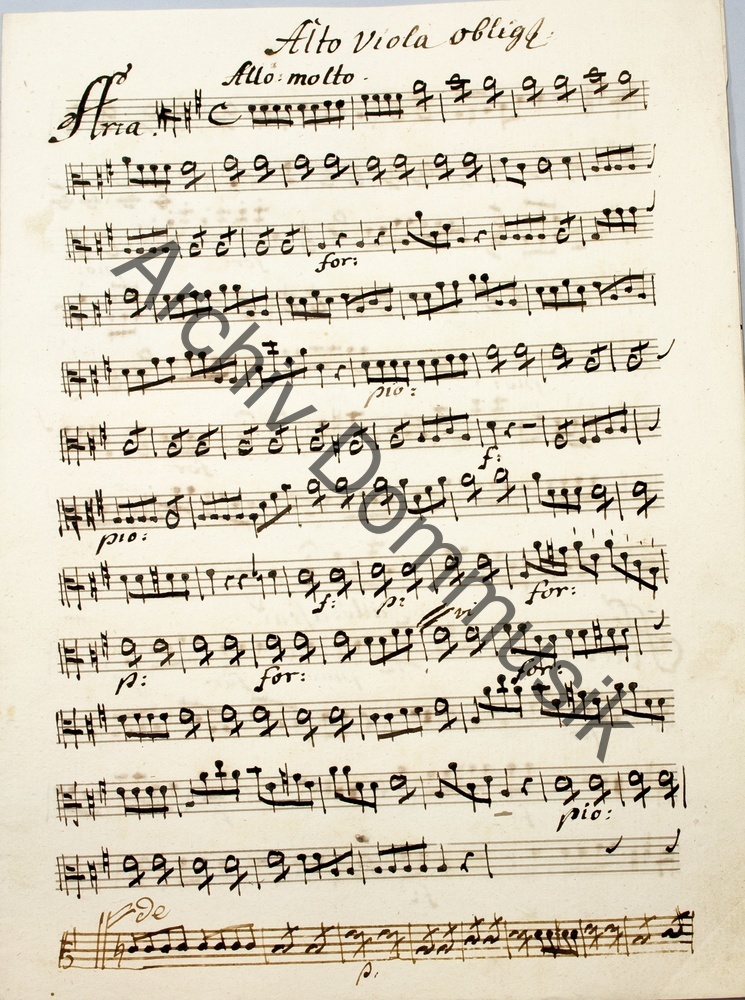 Alto Viola oblig:
Allo: molto.
Aria.
C
for:
pio:
f:
pio:
f: p: for:
p: for: vi for:
pio:
de
p.
Archiv Dommusik